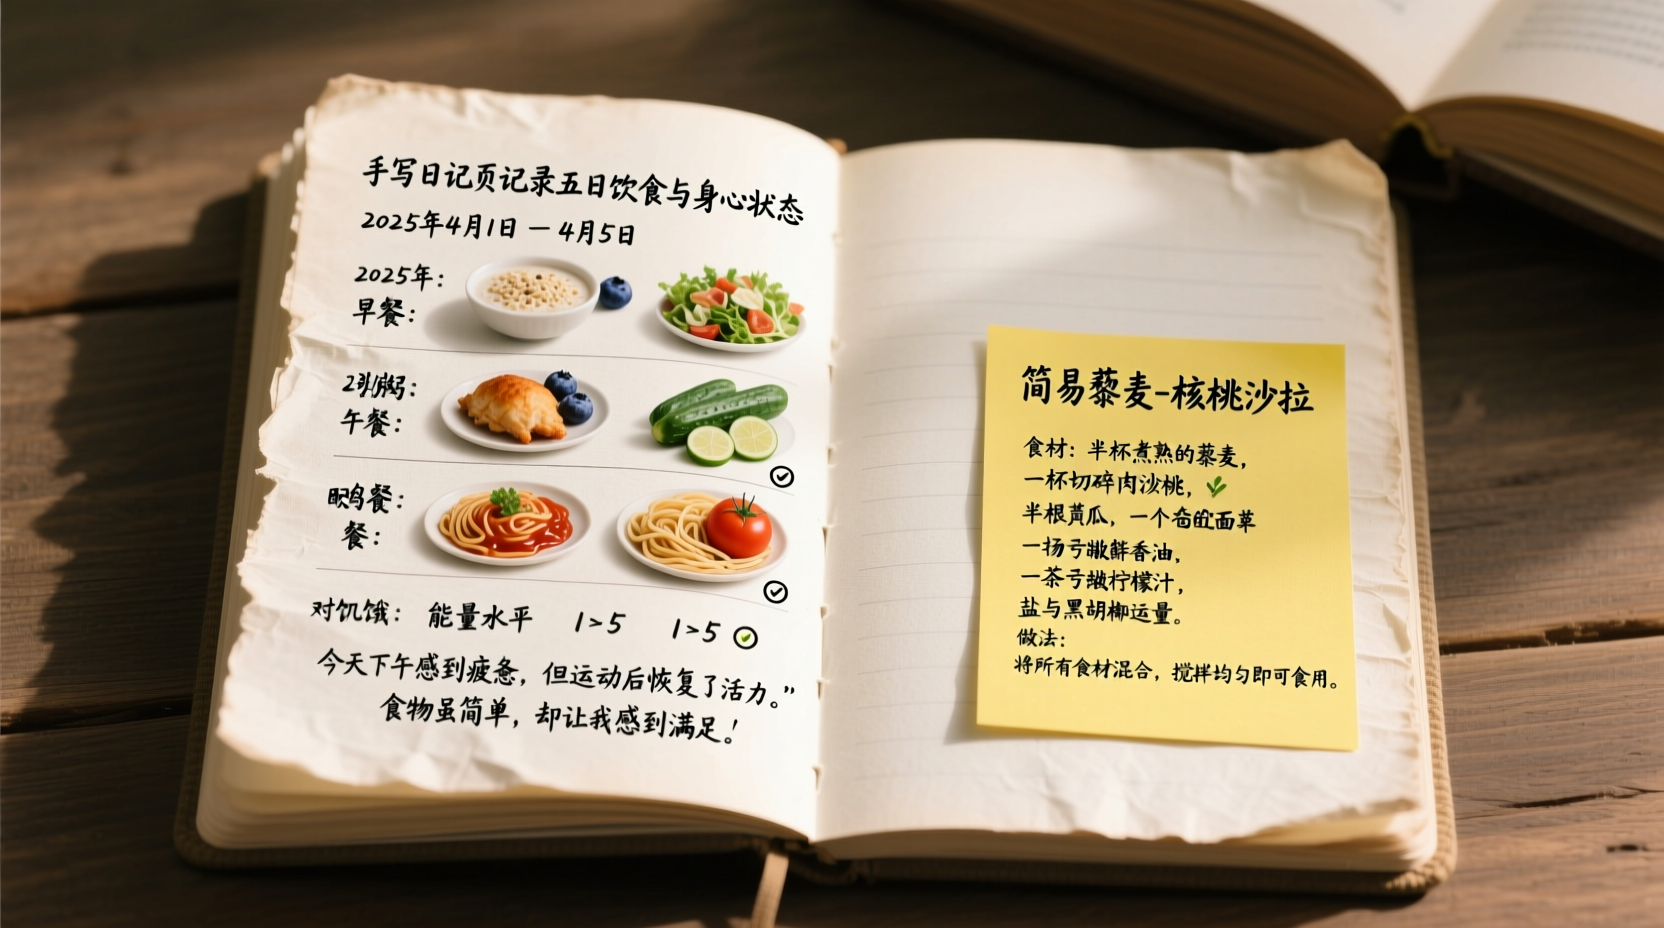 手写日记页记录五日饮食与身心状态
2025年4月1日 — 4月5日
2025年：
早餐：
午餐：
餐：
餐：
对饥饿： 能量水平 1>5 1>5
今天下午感到疲惫，但运动后恢复了活力。”
食物虽简单，却让我感到满足！
简易藜麦-核桃沙拉
食材：半杯煮熟的藜麦，
一杯切碎肉沙桃，
半根黄瓜，一个
一 香油，
一茶 柠檬汁，
盐与黑胡椒 量。
做法：
将所有食材混合，搅拌均匀即可食用。